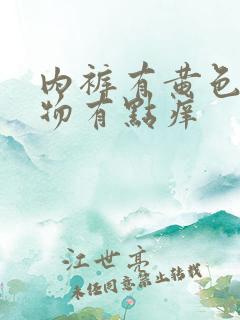 内裤有黄色
物有點痒
江世亮
未经同意禁止转载